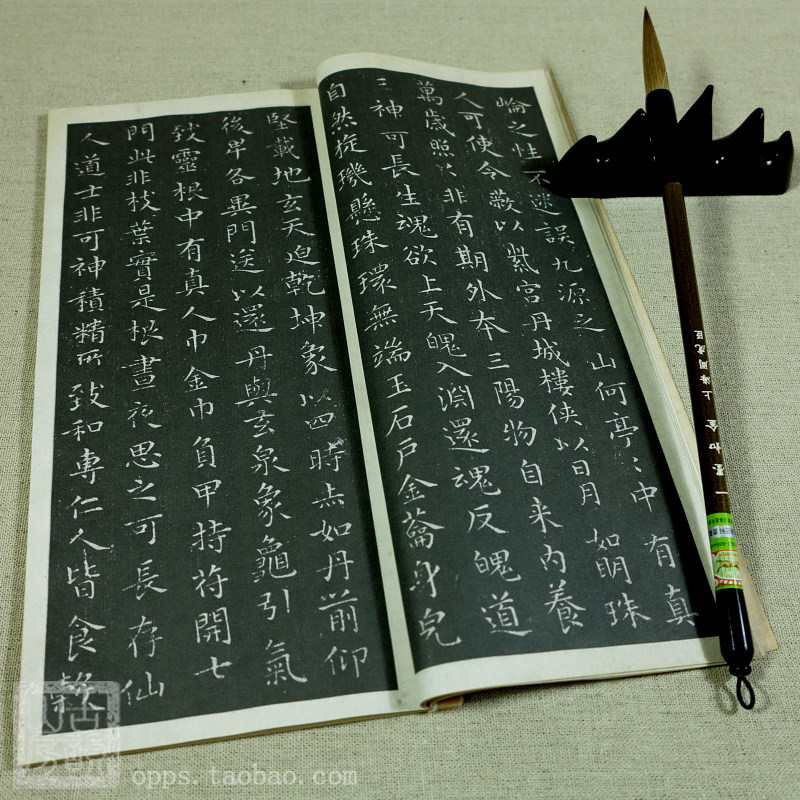 崘之性不迷誤九源之山何亭〻中有真
人可使令蔽以紫宮丹城樓俠以日月如明珠
萬歲照〻非有期外本三陽物自来內養
三神可長生魂欲上天魄入淵還魂反魄道
自然㨁璣懸珠環無端玉石戶金籥身皃
堅載地玄天迫乾坤象以四時赤如丹前仰
後卑各異門送以還丹與玄泉象龜引氣
致靈根中有真人巾金巾負甲持符開七
門此非枝葉實是根晝夜思之可長存仙
人道士非可神積精所致和專仁人皆食
上海周虎臣
opps.taobao.com